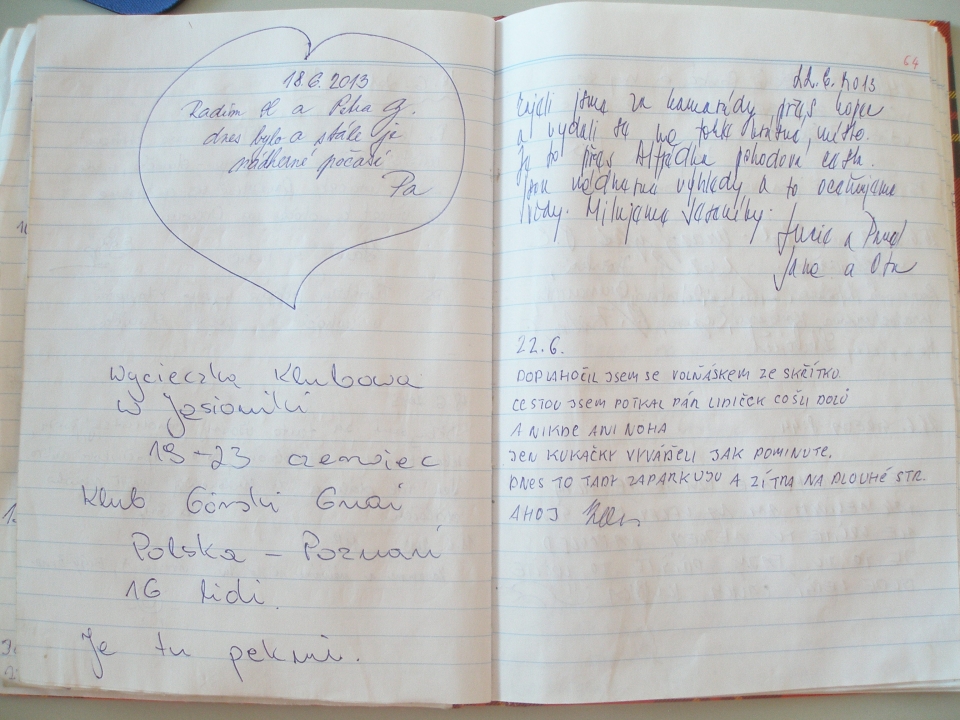 18.6.2013
Radim H a Petra G.
dnes bylo a stále je
nádherné počasí
Pa
Wycieczka Klubowa
w Jesioniki
19-23 czerwiec
Klub Górski Grań
Polska - Poznań
16 lidi.
Je tu pekni.
64
22.6.2013
jsme za kamarády přes kopce
a vydali se na
to přes pohodová cesta.
výhledy a to oceňujeme
Milujeme Jeseníky.
Lucie a Pavel
Jana a Ota
22.6.
DOPLAHOČIL JSEM SE VOLŇÁSKEM ZE SKŘÍTKU
CESTOU JSEM POTKAL PÁR LIDIČEK CO ŠLI DOLŮ
A NIKDE ANI NOHA
JEN KUKAČKY VYVÁDĚLI JAK POMINUTÉ.
DNES TO TADY ZAPARKUJU A ZÍTRA NA DLOUHÉ STR.
AHOJ